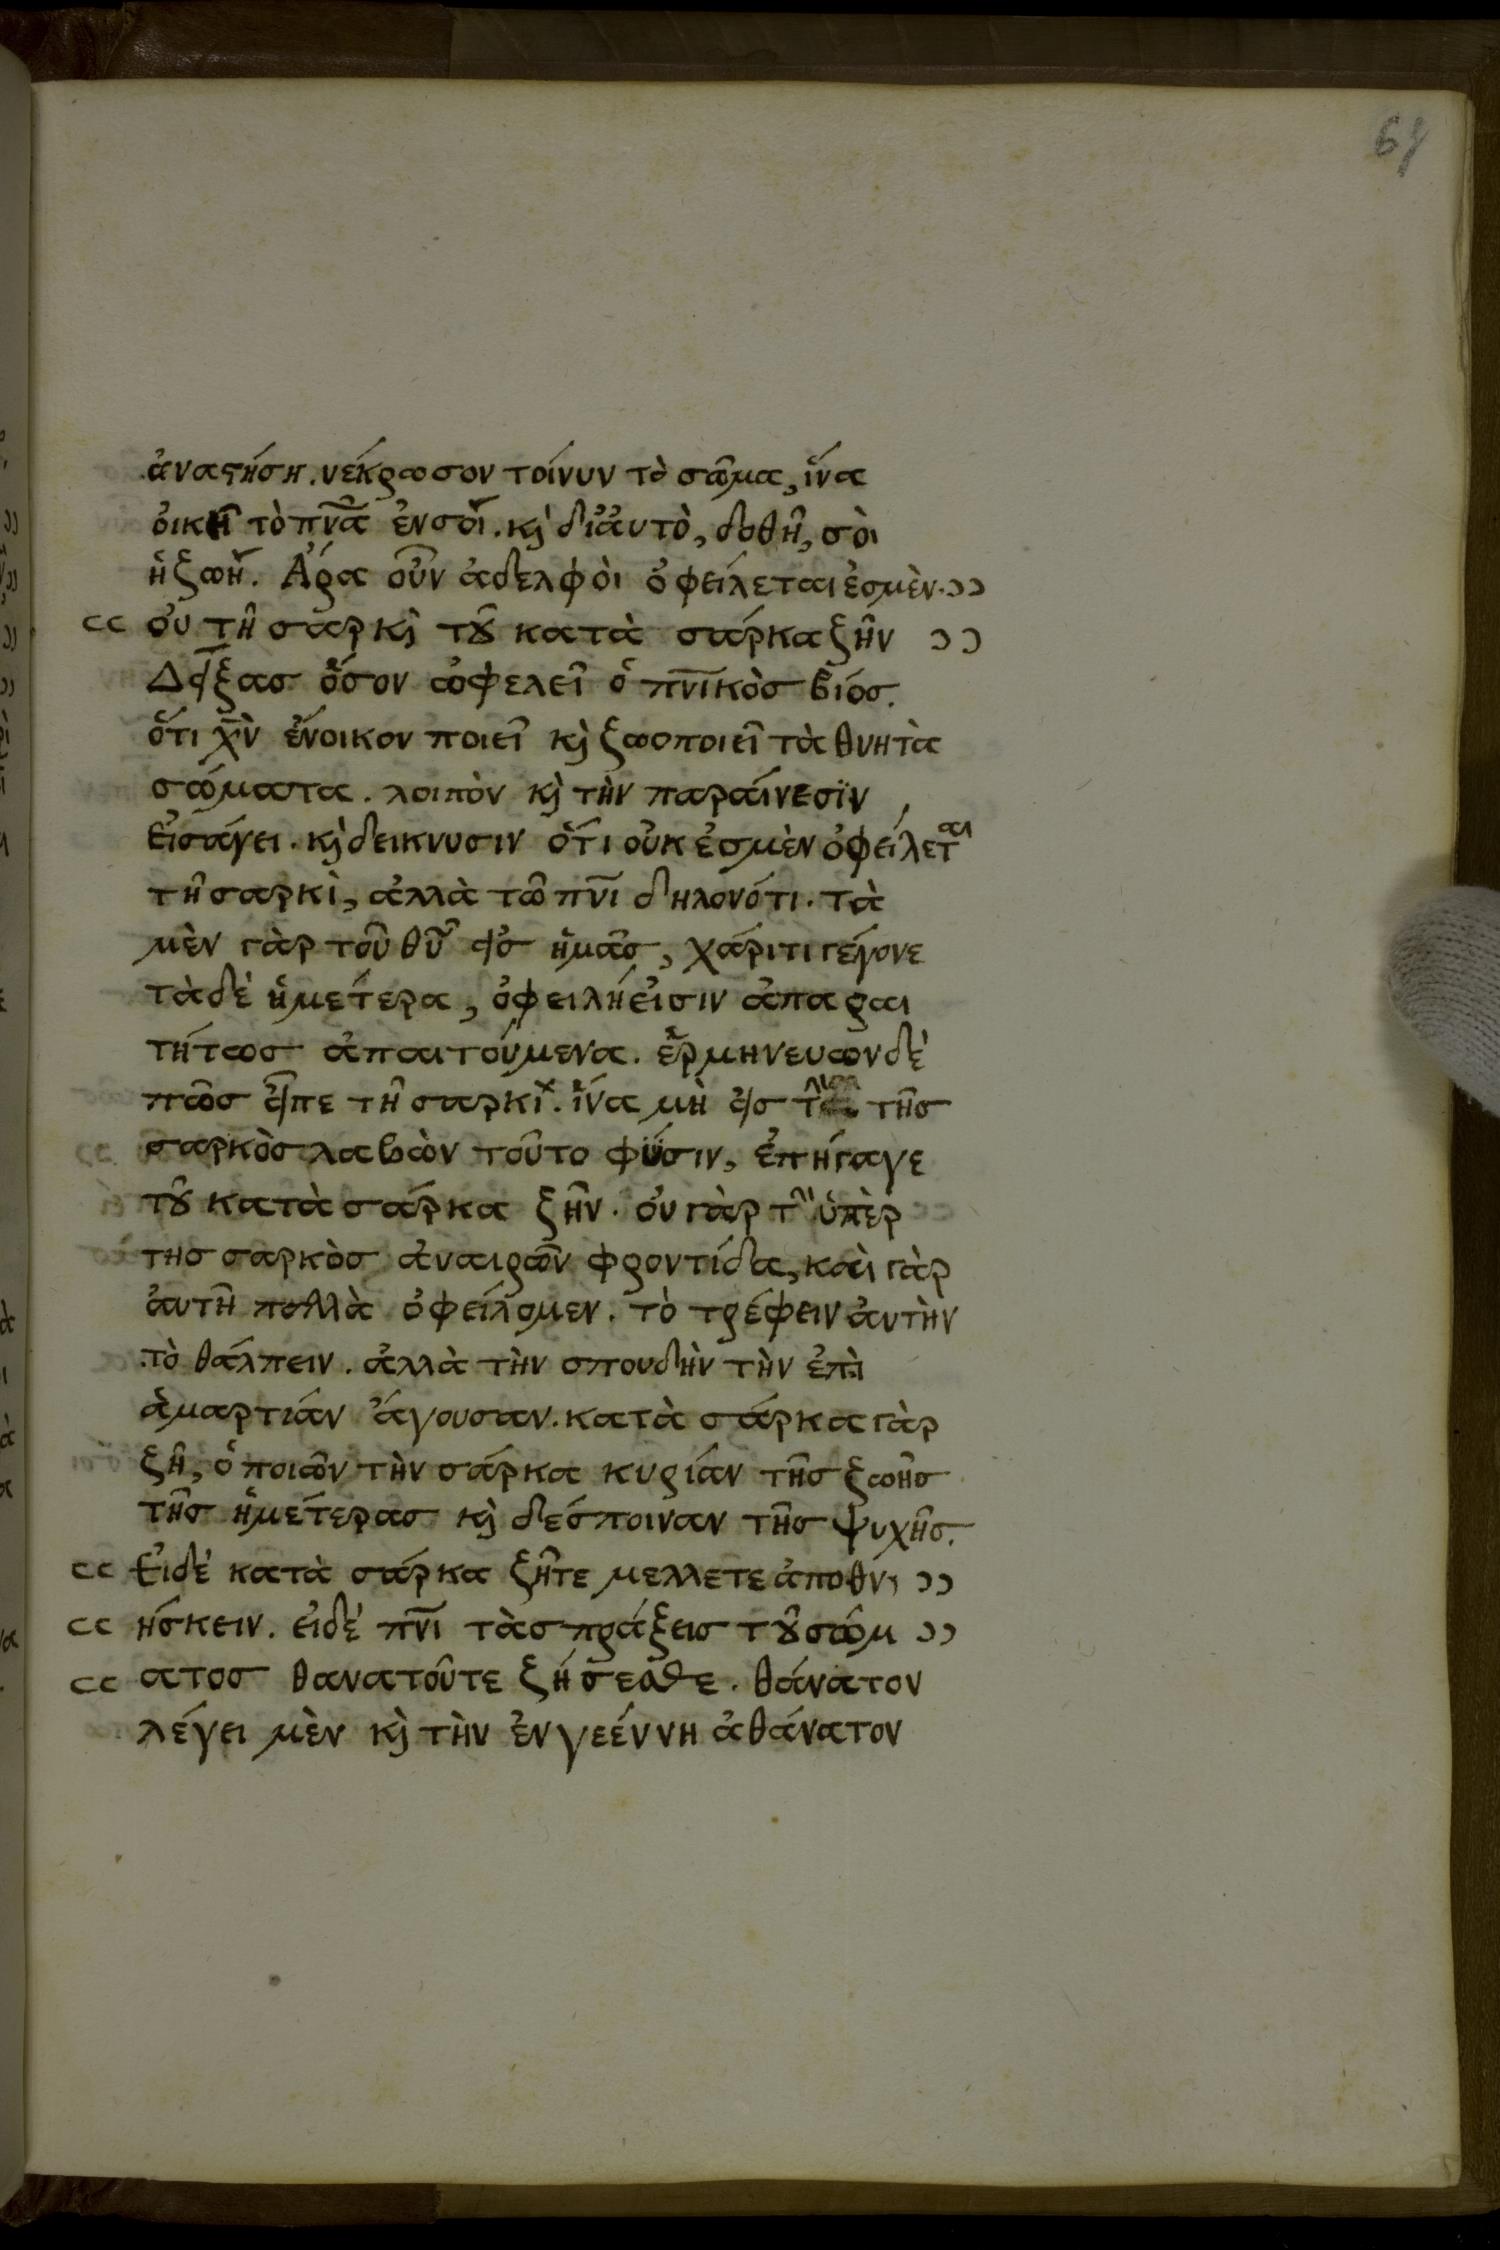 64
ἀναστήση. νέκρωσον τοίνυν τὸ σῶμα, ἵνα
ὀικῆ τὸ πν̅α ἐν σοὶ. κὶ διἀυτὸ, δοθῆ, σὸι
ἡ ζωὴ. Ἄρα οὖν ἀδελφὸι ὀφειλεται ἐσμὲν. ͻͻ
cc ὀυ τῆ σαρκὶ τȣ κατὰ σάρκα ζῆν ͻͻ
Δείξας ὅσον ὠφελεῖ ὁ πν̅ικὸσ βίοσ.
ὅτι χ̅ν ἔνοικον ποιεῖ κὶ ζωοποιεῖ τὰ θνητὰ
σώματα. λοιπὸν κὶ τὴν παράινεσϊν
Εἰσάγει. κὶ δεικνυσιν ὅτι οὐκ ἐσμὲν ὀφείλεται
τῆ σαρκὶ, ἀλλὰ τῶ πν̅ι δηλονότι. τὰ
μὲν γὰρ τοῦ θ̅υ εἰσ ἡμᾶσ, χάριτι γέγονε
τὰ δὲ ἡμέτερα, ὀφειλή εἰσιν ἀπαραι
τήτωσ ἀπαιτούμενα. ἑρμηνευων δὲ
πῶσ εἶπε τῆ σαρκὶ. ἵνα μὴ εἰσ τὴν τῆσ
σαρκὸσ λαβὼν τοῦτο φύσιν, ἐπήγαγε
τȣ κατὰ σάρκα ζῆν. ὀυ γὰρ τὴν ὑπὲρ
τησ σαρκὸσ ἀναιρῶν φροντίδα, καὶ γὰρ
ἀυτῆ πολλὰ ὀφείλομεν. τὸ τρέφειν ἀυτὴν
τὸ θάλπειν. ἀλλὰ τὴν σπουδὴν τὴν ἐπὶ
ἁμαρτιάν ἄγουσαν. κατὰ σάρκα γὰρ
ζῆ, ὁ ποιῶν τὴν σάρκα κυρίαν τῆσ ζωῆσ
τῆσ ἡμετέρασ κὶ δέσποιναν τῆσ ψυχῆσ.
cc Εἰδὲ κατὰ σάρκα ζῆτε μελλετε ἀποθν ͻͻ
cc ήσκειν. εἰδὲ πν̅ι τὰσ πράξεισ τȣ σώμ ͻͻ
cc ατοσ θανατοῦτε ζήσεσθε. θάνατον
λέγει μὲν κὶ τὴν ἐν γεέννη ἀθάνατον